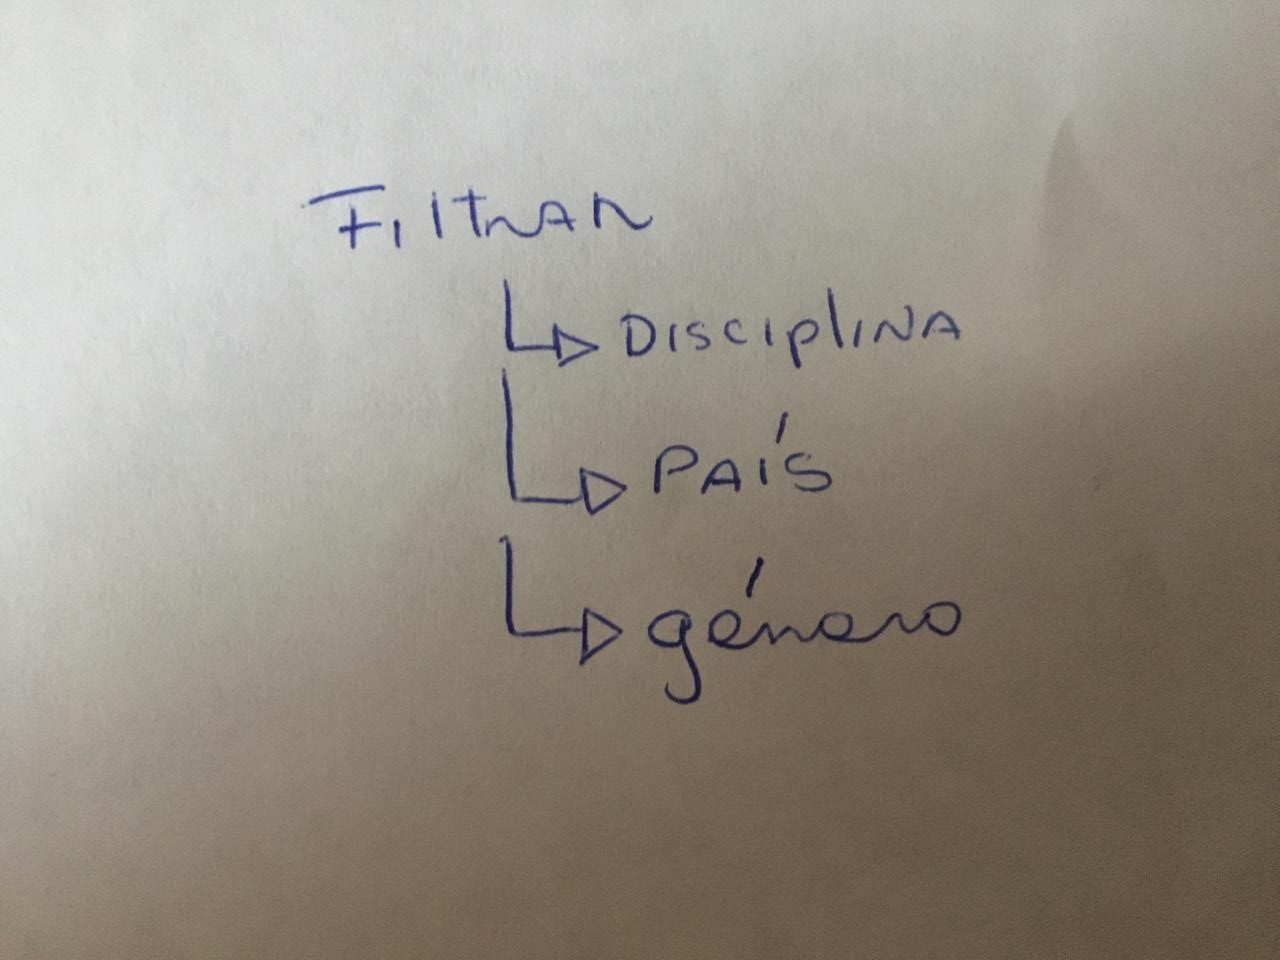 Filtrar
Disciplina
País
género